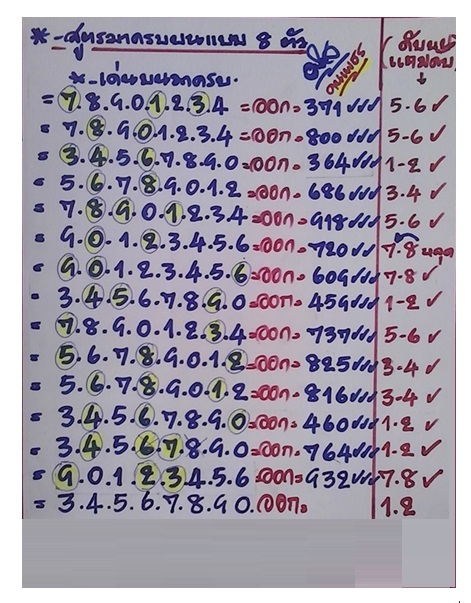 *-สูตร 8 ตัว
*-เด่นบน
= 7.8.9.0.1.2.3.4 =ออก= 371 ✓✓✓ 5-6 ✓
= 7.8.9.0.1.2.3.4 =ออก= 800 ✓✓✓ 5-6 ✓
= 3.4.5.6.7.8.9.0 =ออก= 364 ✓✓✓ 1-2 ✓
= 5.6.7.8.9.0.1.2 =ออก= 686 ✓✓✓ 3-4 ✓
= 7.8.9.0.1.2.3.4 =ออก= 918 ✓✓✓ 5-6 ✓
= 9.0.1.2.3.4.5.6 =ออก= 720 ✓✓✓ 7.8 หลุด
= 9.0.1.2.3.4.5.6 =ออก= 609 ✓✓✓ 7-8 ✓
= 3.4.5.6.7.8.9.0 =ออก= 459 ✓✓✓ 1-2 ✓
= 7.8.9.0.1.2.3.4 =ออก= 737 ✓✓✓ 5-6 ✓
= 5.6.7.8.9.0.1.2 =ออก= 825 ✓✓✓ 3-4 ✓
= 5.6.7.8.9.0.1.2 =ออก= 816 ✓✓✓ 3-4 ✓
= 3.4.5.6.7.8.9.0 =ออก= 460 ✓✓✓ 1-2 ✓
= 3.4.5.6.7.8.9.0 =ออก= 764 ✓✓✓ 1-2 ✓
= 9.0.1.2.3.4.5.6 =ออก= 932 ✓✓✓ 7.8 ✓
= 3.4.5.6.7.8.9.0. ออก= 1.2